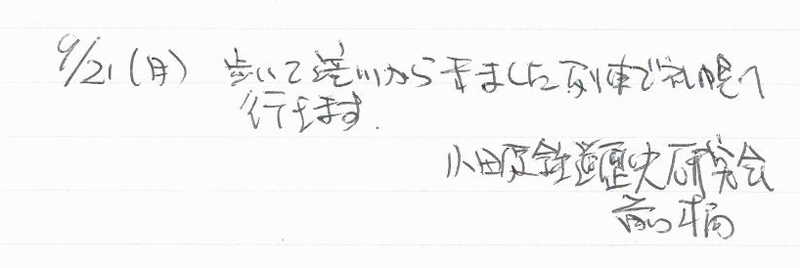 9/21(月) 歩いて滝川から来ました列車で札幌へ
行きます.
小田原鉄道歴史研究会
前橋